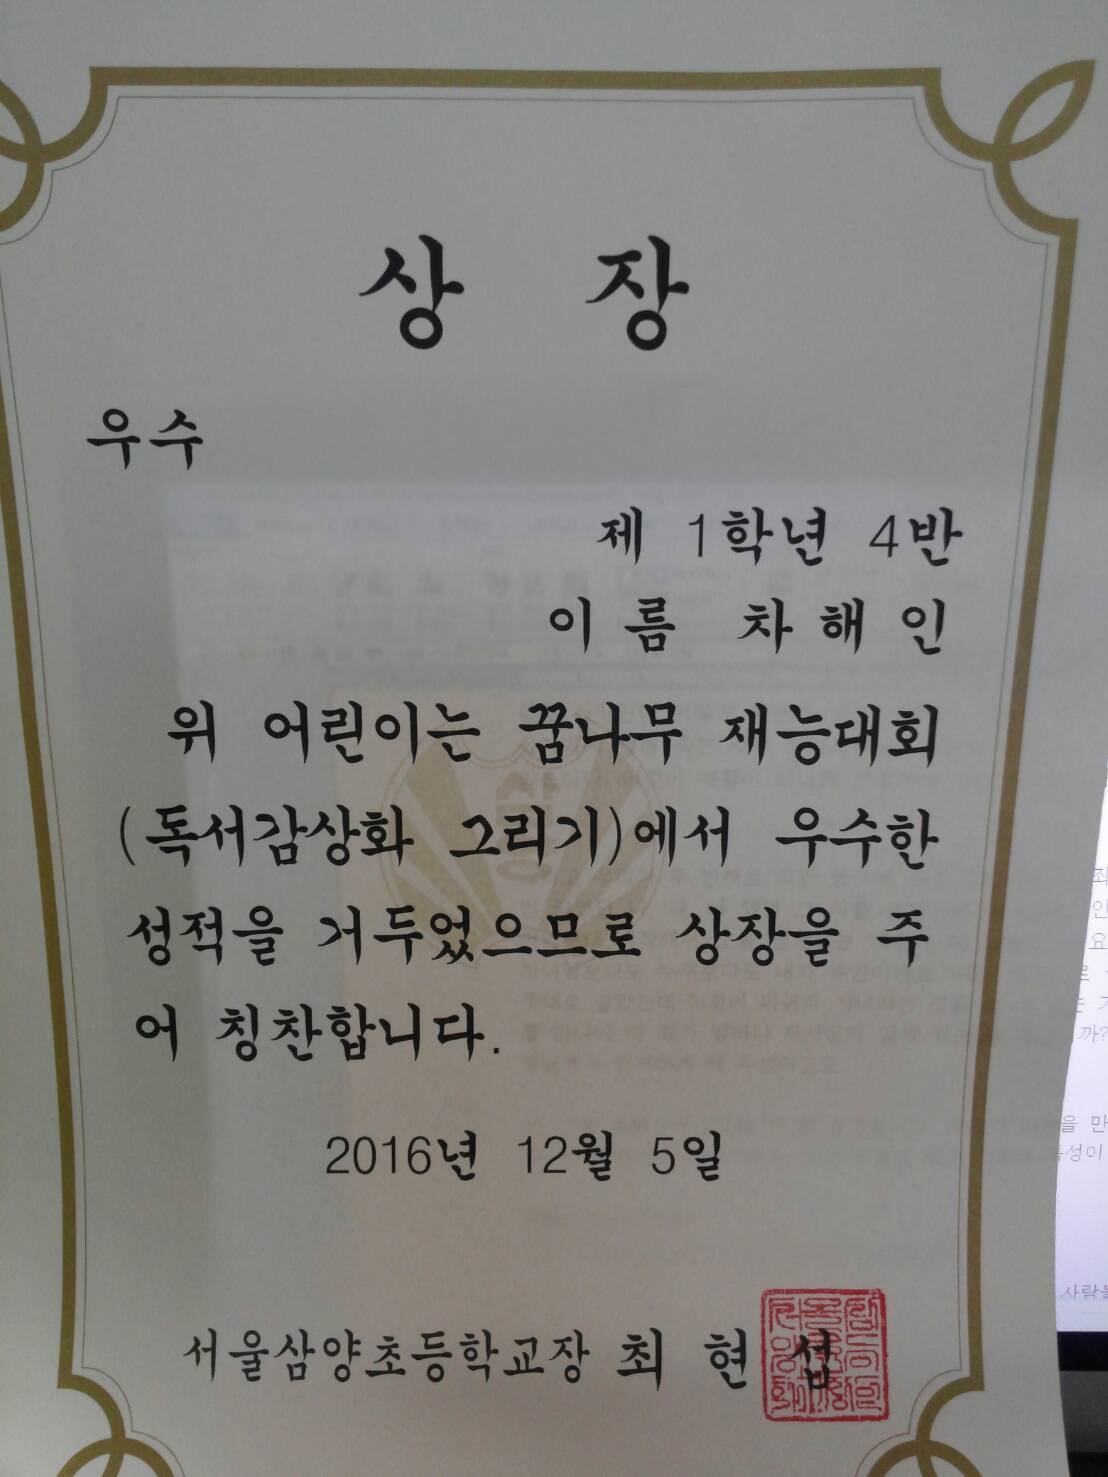 상 장
우수
제 1학년 4반
이름 차해인
위 어린이는 꿈나무 재능대회
(독서감상화 그리기)에서 우수한
성적을 거두었으므로 상장을 주
어 칭찬합니다.
2016년 12월 5일
서울삼양초등학교장 최 현 섭